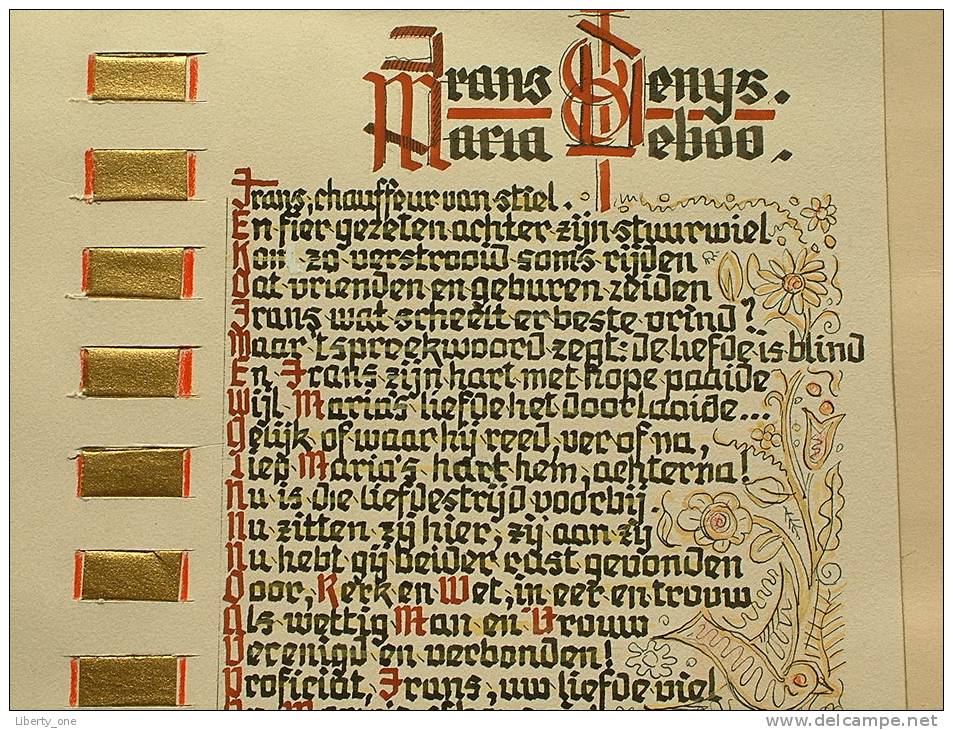 Frans Genys.
Maria Leboo.
Frans, chauffeur van stiel.
En fier gezeten achter zijn stuurwiel
Kon zo verstrooid soms rijden
Dat vrienden en geburen zeiden
Frans wat scheelt er beste vrind?
Maar 't spreekwoord zegt: de liefde is blind
En Frans zijn hart met hope paaide
Wijl Maria's liefde het doorlaaide...
Gelijk of waar hij reed, ver of na,
Liep Maria's hart hem, achterna!
Nu is die liefdestrijd voorbij.
Nu zitten zij hier, zij aan zij
Nu hebt gij beider rast gevonden
Door, Kerk en Wet, in eer en trouw
Als wettig Man en Vrouw
Verenigd en verbonden!
Proficiat, Frans, uw liefde viel
Liberty_one
www.delcampe.net